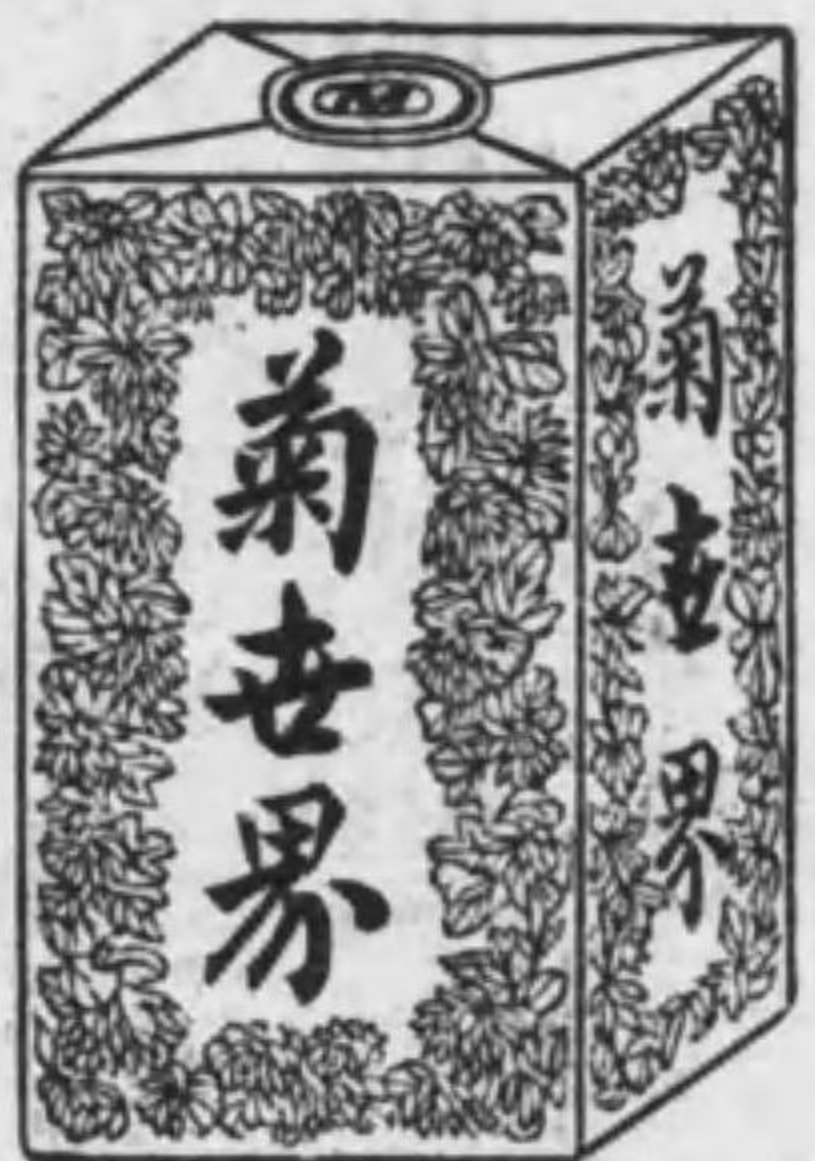 菊世界
菊世界